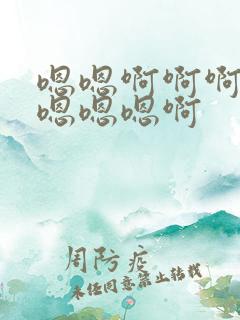 嗯嗯啊啊啊
嗯嗯嗯啊
周防疫
未经同意禁止转载